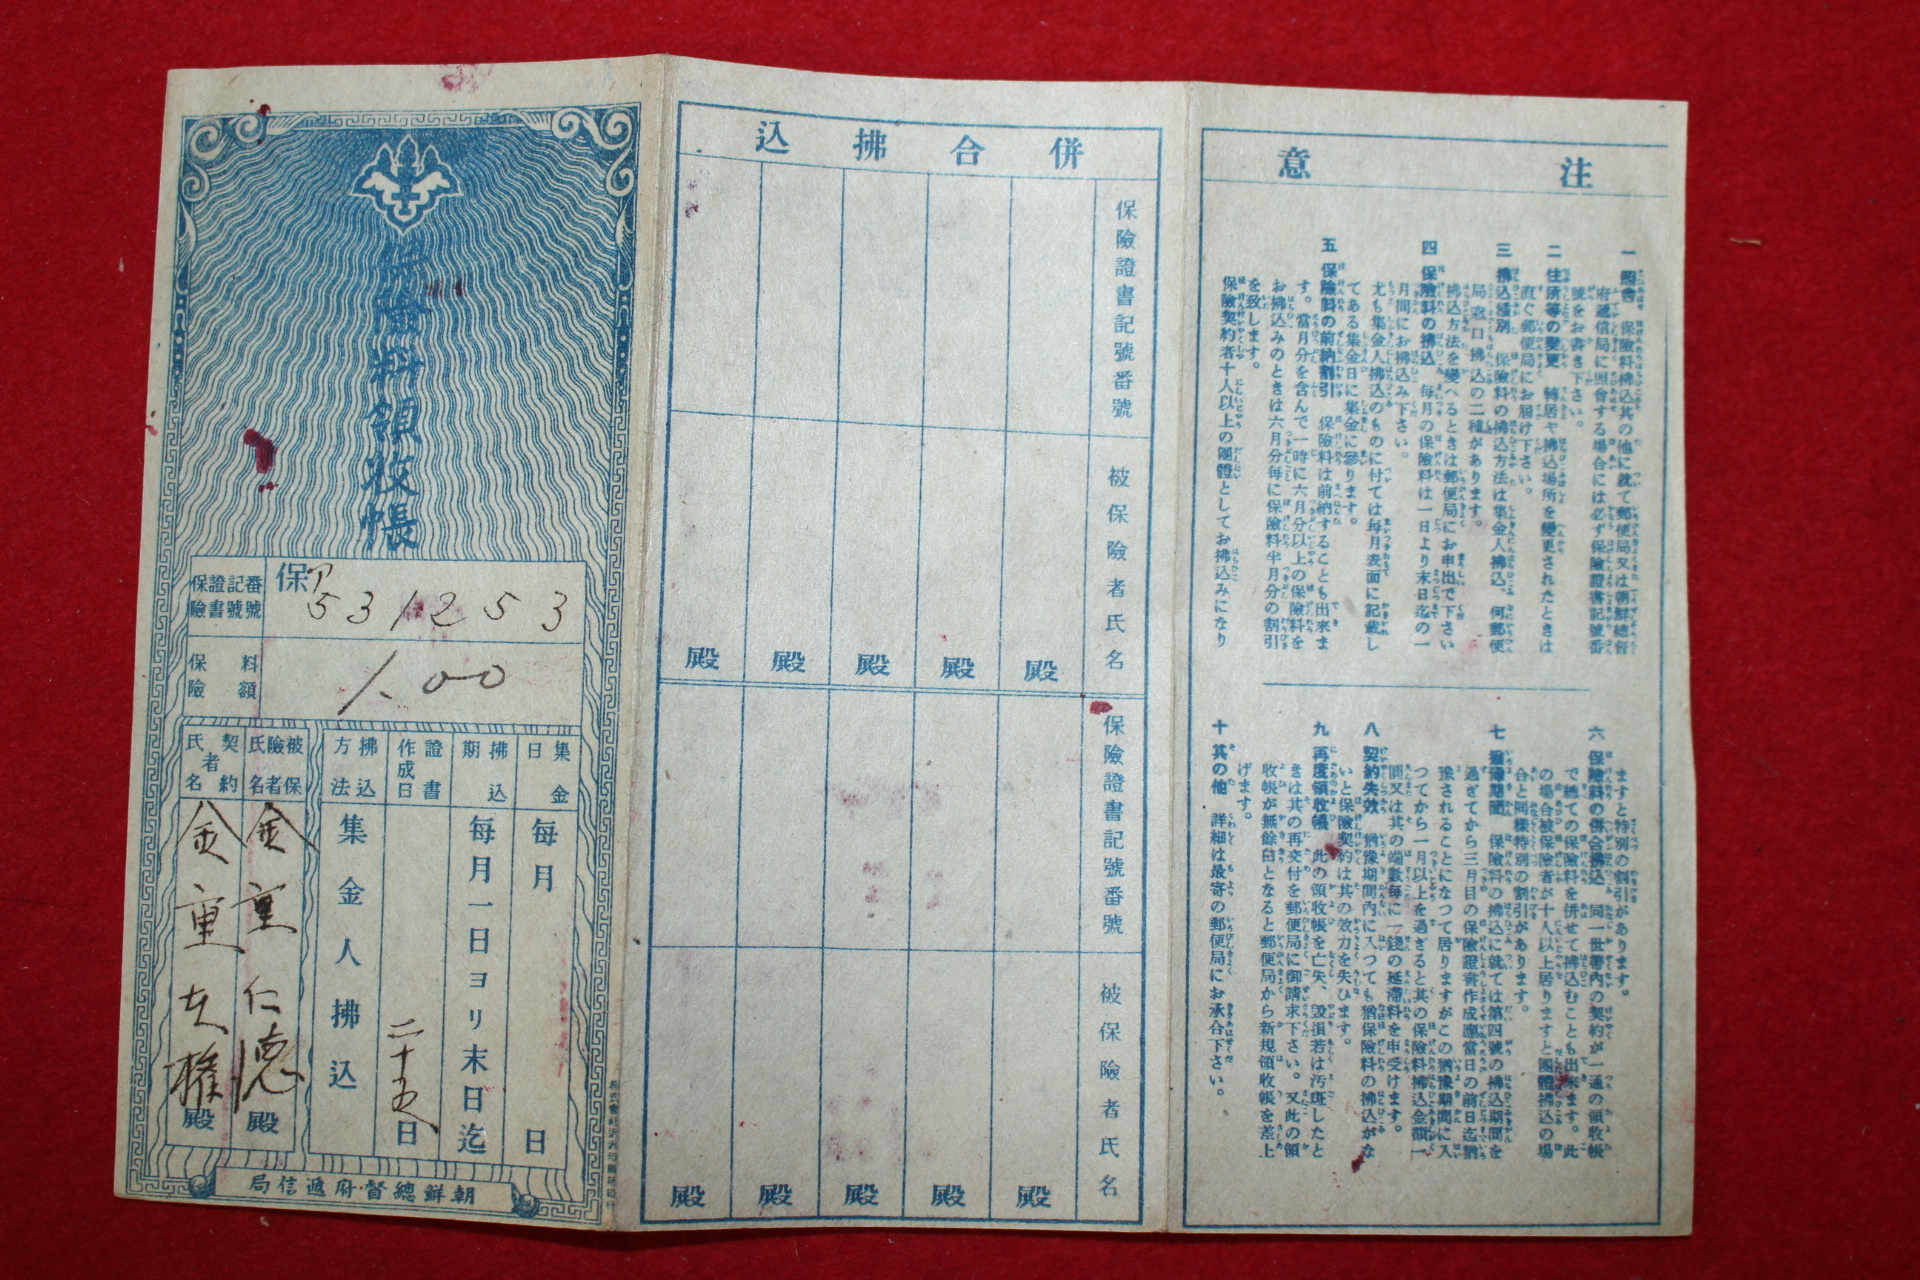 保險料領收帳
保險證書記號番號
保ア
531253
保險料額
1.00
集金日
每月 日
拂込期
每月一日ヨリ末日迄
證書作成日
二十五日
拂込方法
集金人拂込
被保險者氏名
金重仁德殿
契約者氏名
金重 殿
朝鮮總督府遞信局
併合拂込
保險證書記號番號
被保險者氏名
殿
殿
殿
殿
殿
保險證書記號番號
被保險者氏名
殿
殿
殿
殿
殿
注意
一 照會 保險料拂込其の他に就て郵便局又は朝鮮總督
府遞信局に照會する場合には必ず保險證書記號番
號をお書き下さい。
二 住所等の變更 轉居や拂込場所を變更されたときは
直ぐ郵便局にお屆け下さい。
三 拂込種別 保險料の拂込方法は集金人拂込、何郵便
局窓口拂込の二種があります。
拂込方法を變へるときは郵便局にお申出で下さい
四 保險料の拂込 每月の保險料は一日より末日迄の一
月間にお拂込み下さい。
尤も集金人拂込のものに付ては每月表面に記載し
てある集金日に集金に參ります。
五 保險料の前納割引 保險料は前納することも出來ま
す。當月分を含んで一時に六月分以上の保險料を
お拂込みのときは六月分每に保險料半月分の割引
を致します。
保險契約者十人以上の團體としてお拂込みになり
ますと特別の割引があります。
六 保險料の併合拂込 同一世帶內の契約が一通の領收帳
で總ての保險料を併せて拂込むことも出來ます。此
の場合被保險者が十人以上居りますと團體拂込の場
合と同樣特別の割引があります。
七 猶豫期間 保險料の拂込に就ては第四號の拂込期間を
過ぎてから三月目の保險證書作成應當日の前日迄猶
豫されることになつて居りますがこの猶豫期間に入
つてから一月以上を過ぎると其の保險料拂込金額一
圓又は其の端數每に一錢の延滯料を申受けます。
八 契約失效 猶豫期間內に入つても猶保險料の拂込がな
いと保險契約は其の效力を失ひます。
九 再度領收帳 此の領收帳を亡失、毀損若は汚斑したと
きは其の再交付を郵便局に御請求下さい。又此の領
收帳が無餘白となると郵便局から新規領收帳を差上
げます。
十 其の他 詳細は最寄の郵便局にお承合下さい。